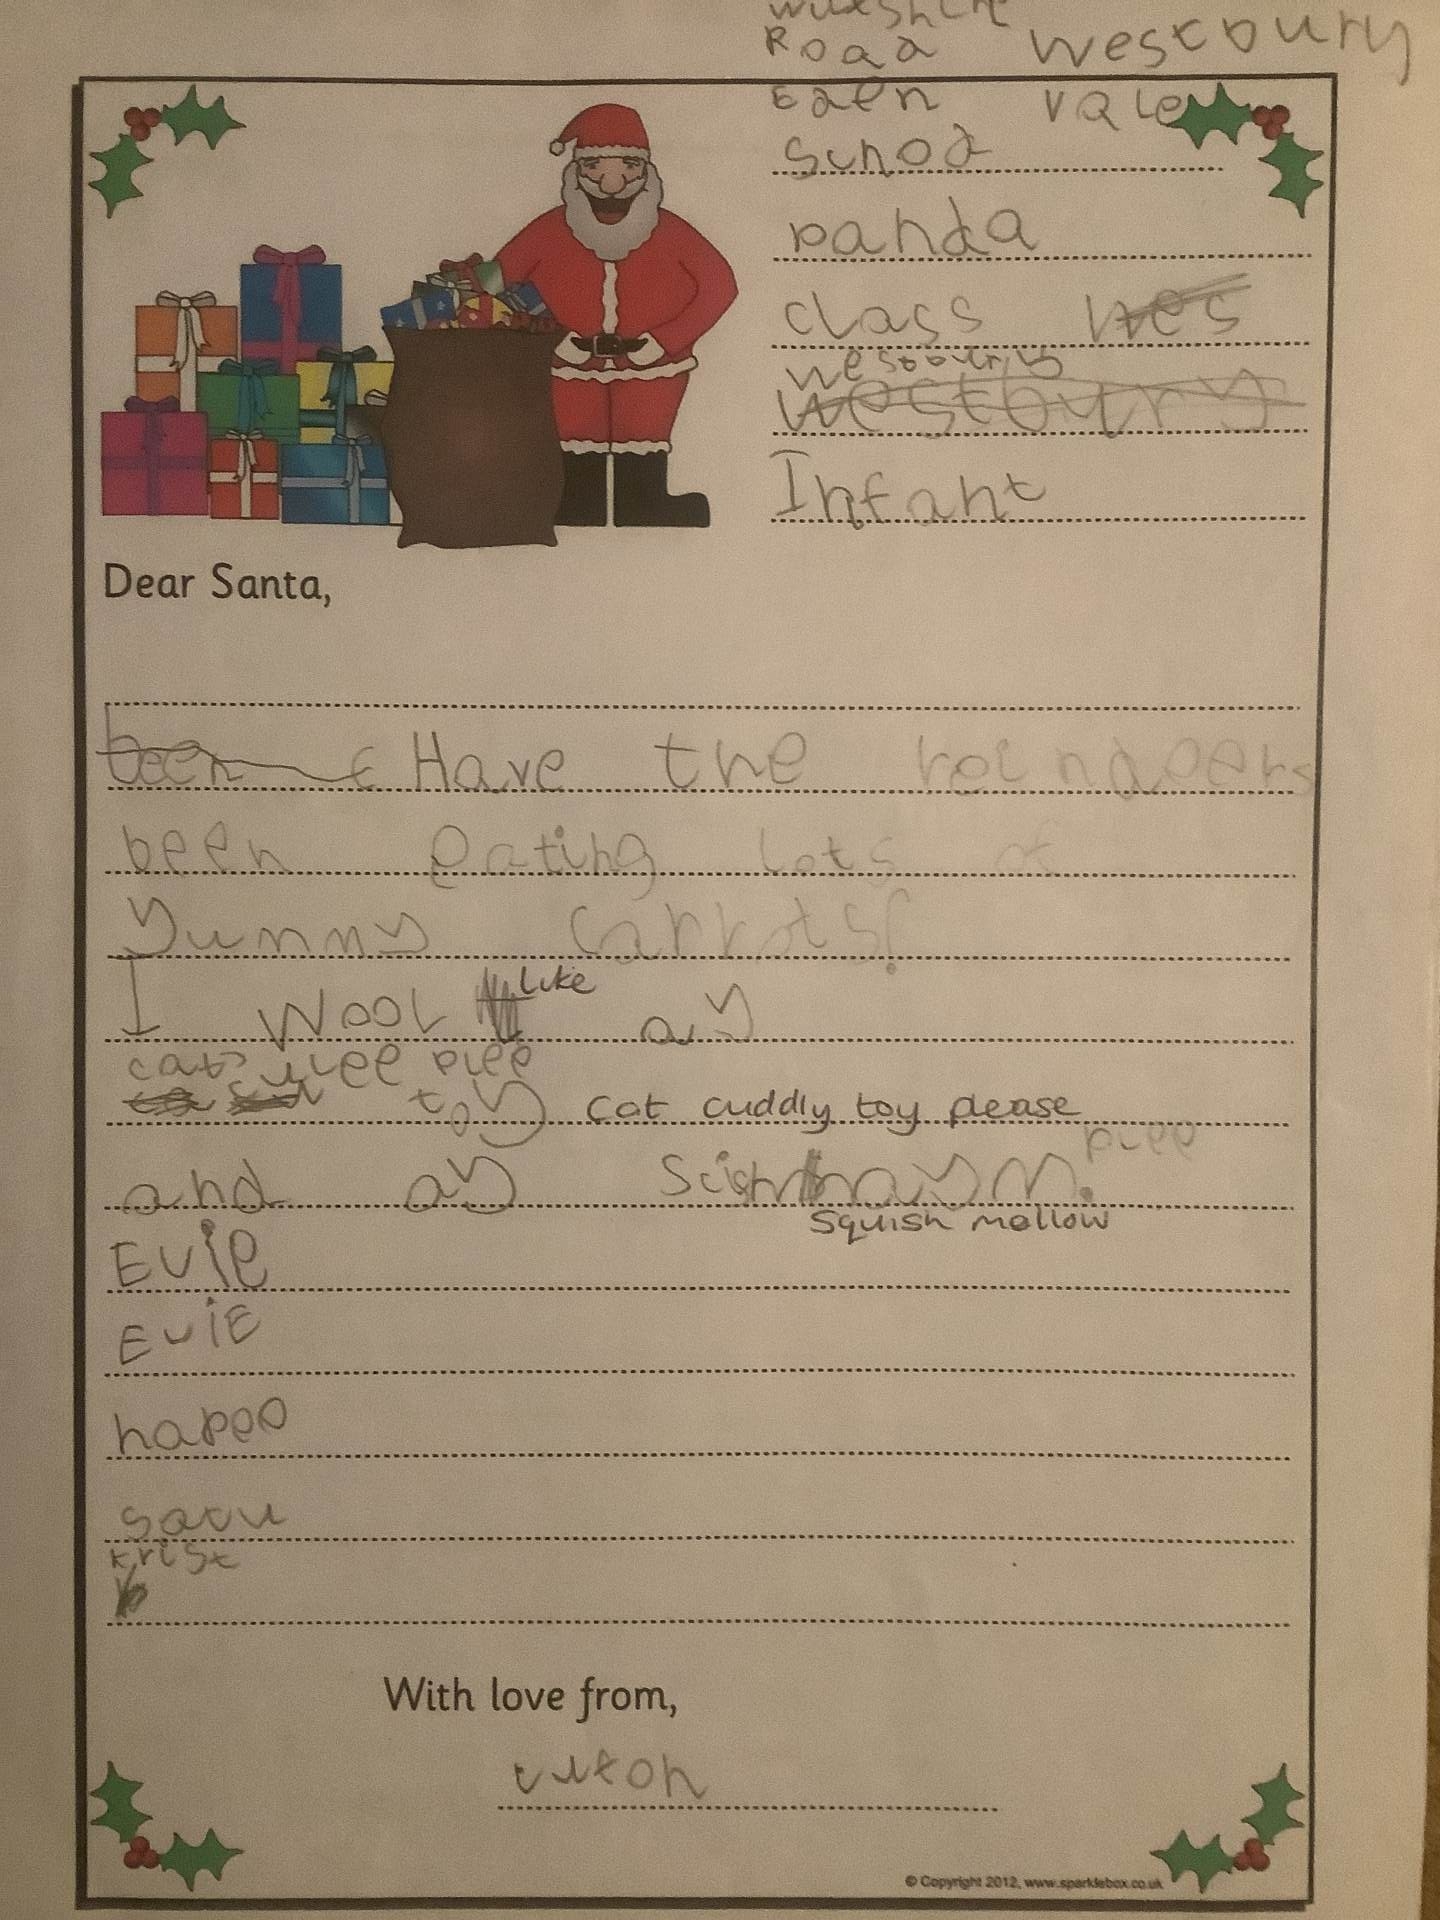 Road Westbury
Eden Vale
panda
class wes
westbury
westbury
Infant
Dear Santa,
been Have the reindeers
been eating lots of
yummy carrots?
I wool like ay
cats plee
toy cat cuddly toy please
plee
and ay
squish mellow
Evie
EviE
happo
krist
With love from,
© Copyright 2012, www.sparklebox.co.uk